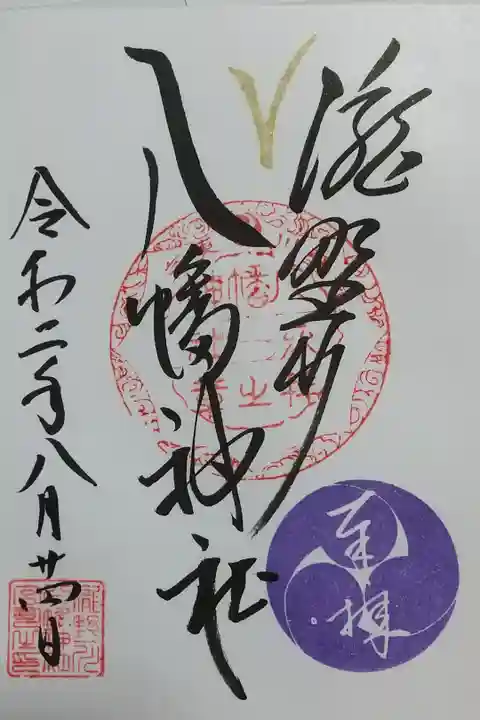 瀧野井
八幡神社
奉拝
令和二年八月廿四日